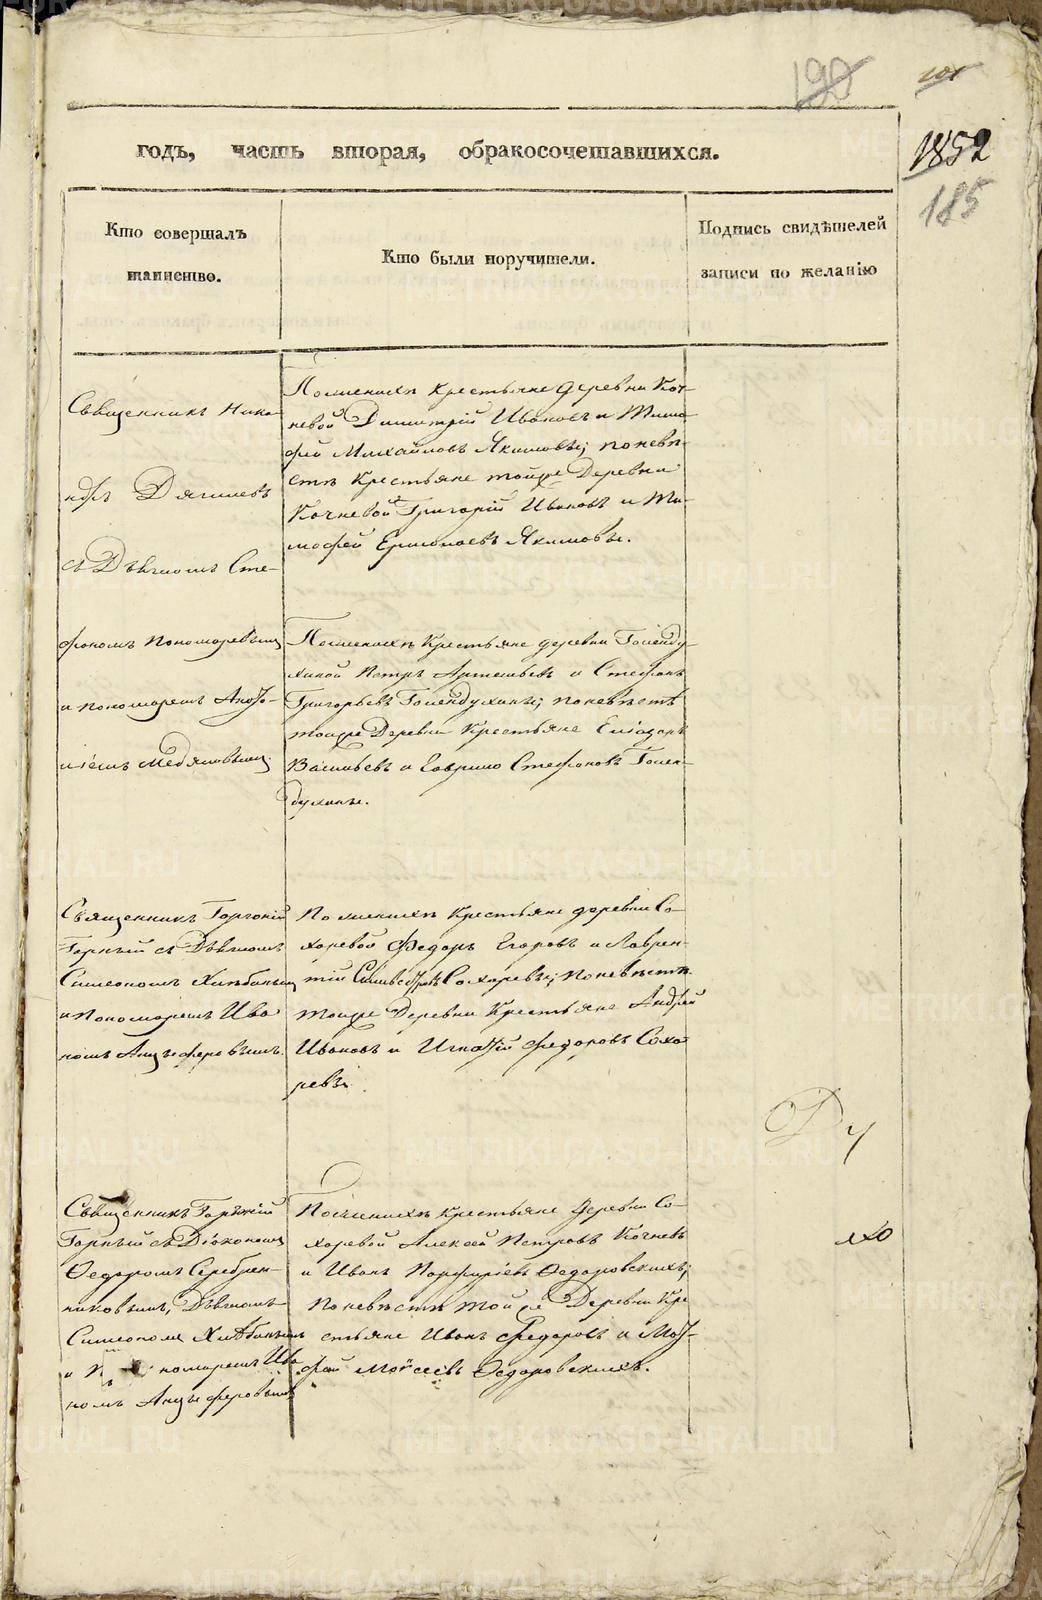 190
1852
185
годъ, часть вторая, обракосочетавшихся.
Кто совершалъ
таинство.
Кто были поручители.
Подпись свидѣтелей
записи по желанію
Священникъ Ника-
ндръ Дягилевъ
съ Дьячкомъ Сте-
фаномъ Пономаревымъ
и пономаремъ
По женихѣ крестьяне деревни Коч-
невой Димитрій Ивановъ и Тимо-
фей Михайловъ Якимовы; по невѣ-
стѣ крестьяне тойже Деревни
Кочневой Григорій Ивановъ и Ти-
мофей Ермолаевъ Якимовы.
По женихѣ крестьяне деревни Голенду-
хиной Петръ Артемьевъ и Стефанъ
Григорьевъ Голендухины; по невѣстѣ
тоиже Деревни Крестьяне Елиазаръ
Васильевъ и Гаврило Стефановъ Голен-
духины.
Священникъ Горгоній
Горный съ Дьячкомъ
Симеономъ Хлѣбинымъ
и Пономаремъ Ива
номъ Анцыферовымъ.
По женихѣ Крестьяне деревни Со-
харевой Федоръ Егоровъ и Лаврен-
тій Сильвестровъ Сохаревы; по невѣстѣ
тоиже Деревни Крестьяне Андрей
Ивановъ и Игнатій Федоровъ Соха
ревы.
Священникъ Горгоній
Горный съ Діакономъ
Ѳедоромъ Серебрен-
никовымъ, Дьячкомъ
Симеономъ Хлѣбинымъ
и пономаремъ Ива
номъ Анцыферовымъ
По женихѣ крестьяне Деревни Со-
харевой Алексей Петровъ Кочневъ
и Иванъ Порфиріевъ Ѳедоровскихъ;
По невѣстѣ той же Деревни Кре
стьяне Иванъ Федоровъ и Мат-
фей Моисеевъ Ѳедоровскихъ.
METRIKI.GASO-URAL.RU